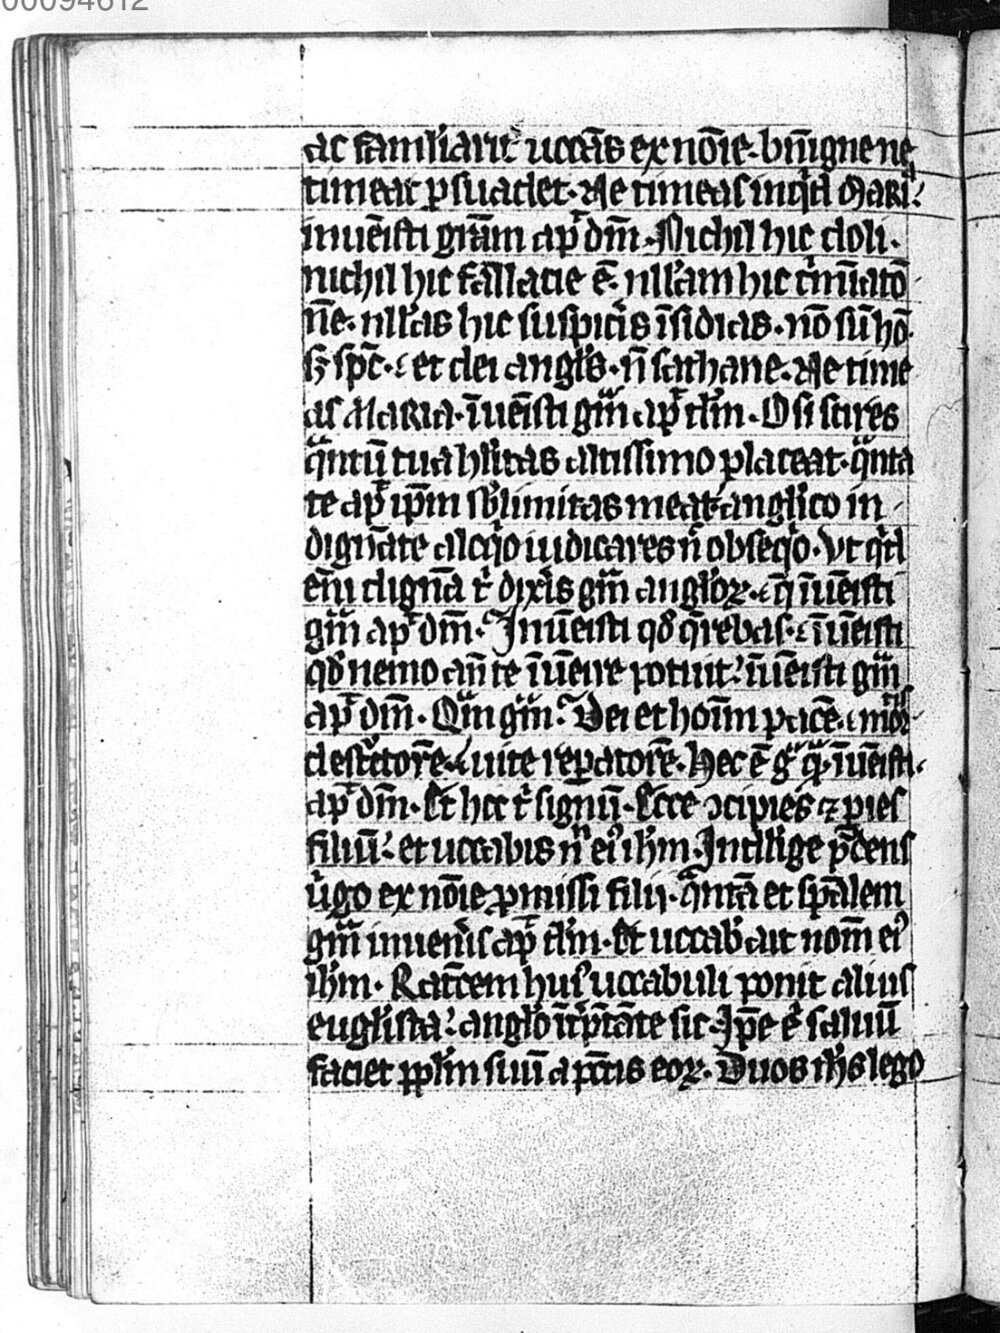 00094612
ac familiarit̉ uocās ex nōie. bn̄igne ne
timeat ꝑsuadet. Ne timeas inqͥd Mariͣ.
inuēisti gr̄am ap̉ dm̄. Nichil hic doli.
nichil hic fallacie ē. nll'am hic
nll'as hic suspicͥs īsidias. nō sū hō.
sꝫ spc̄. ⁊ et dei angl's. n̄ sathane. Ne time
as Maria. īuēisti gͣm ap̉ dn̄m. O si scires
qͣntū tua hūl'itas altissimo placeat. qͣnta
te ap̉ ip̄m sb'limitas meat. angl'ico in
dignāte aloqͥo iudicares n̄ obseqͥo. Vt qͥd
eni dignā t̉ dixͥs gͣm anglor̉ꝝ. ⁊ q̄ īuēisti
gͣm ap̉ dm̄. Inuēisti qd̉ qͣrebas. ⁊ īuēisti
qd̉ nemo an̄ te īuēire potuit. īuēisti gͣm
ap̉ dm̄. Qͣm gͣm. Dei et hoīm pacē. ⁊ mor̉
destͣctōrē. ⁊ uite repatorē. Hec ē gͦ gͣ qͣ īuēisti.
ap̉ dm̄. Et hoc t̉ signū. Ecce ↄcipies ⁊ pies
filiū. et uocabis n̄ ei' ihm̄. Intellige pͥdens
uͥgo ex nōie ꝓmissi filij. qͣntā et spāl̄em
gͣm inuenͥis ap̉ dn̄m. Et uocab' ait nom̄ ei'
ihm̄. Rat̄cem hui' uocabuli ponit alius
eugl'ista. angl'o īt̉p̄tāte sic. Ip̄e ē salūū
faciet ppl'm suū a pc̄tis eoꝝ. Duos ih̄s lego